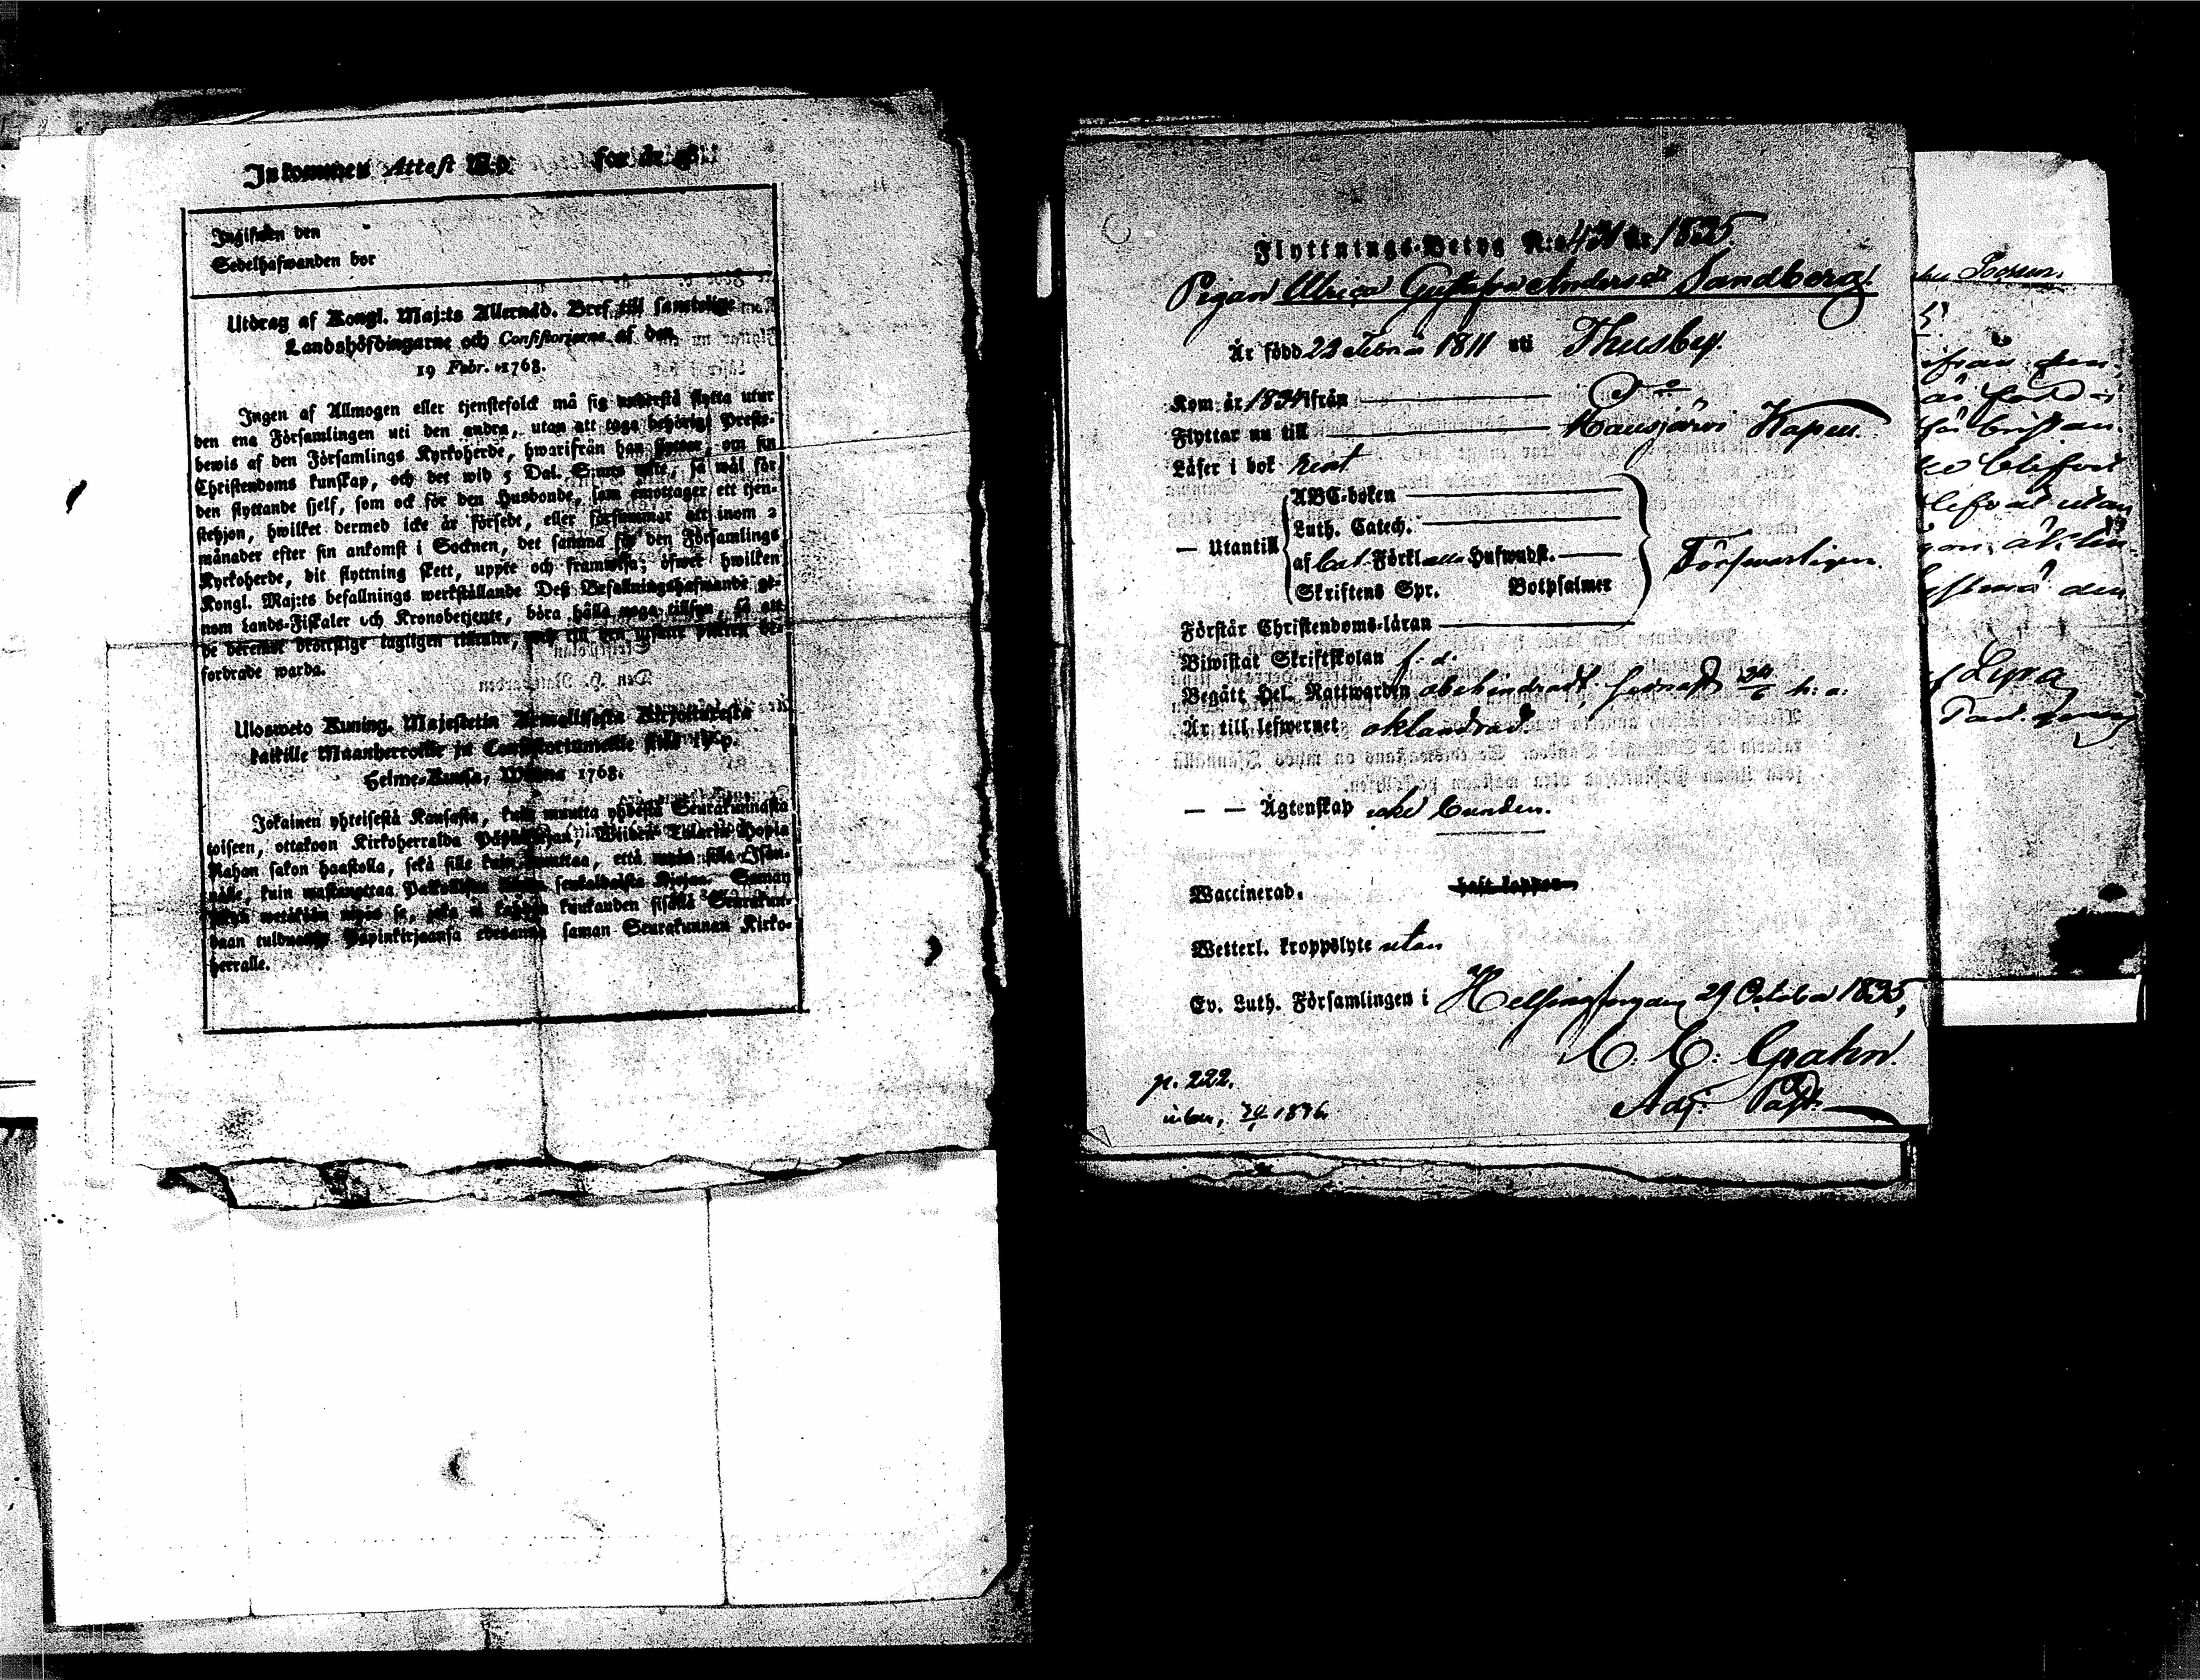 Inkommen Attest N:o for år 18
Ingifwen den
Sedelhafwanden bor
Utdrag af Kongl. Maj:ts Allernåd. Bref till samtelige
Landshöfdingarne och Consistorierne af den
19 Febr. 1768.
Ingen af Allmogen eller tjenstefolck må sig understå flytta utur
den ena Församlingen uti den andra, utan att taga behörigt Preste-
bewis af den Församlings Kyrkoherde, hwarifrån han flyttar, om sin
Christendoms kunskap, och det wid 5 Dal. S:mts wite, så wäl för
den flyttande sjelf, som ock för den Husbonde, som emottager ett tjen-
stehjon, hwilket dermed icke är försedt, eller försummar att inom 2
månader efter sin ankomst i Socknen, det samma för den Församlings
Kyrkoherde, dit flyttning skett, uppte och framwisa; öfwer hwilken
Kongl. Maj:ts befallnings werkställande Deß Befallningshafwande ge-
nom Lands-Fiskaler och Kronobetjente, böra hålla noga tillsyn, så att
de deremot brottslige lagligen tilltalte, och till den utsatte plikten be-
fordrade warda.
Ulosweto Kuning. Majestetin Armollisesta Kirjoituxesta
kaikille Maanherroille ja Consistoriumeille siitä 19 p.
Helme-Kuusa, Wuona 1768.
Jokainen yhteisestä Kansasta, kuin muutta yhdestä Seurakunnasta
toiseen, ottakoon Kirkoherralda Päpinkirjan, Wiiden Talarin Hopia
Rahan sakon haastolla, sekä sille kuin muuttaa, että myös sille Isän-
nälle, kuin wastanottaa
naan tulduansa Päpinkirjaansa edesanna saman Seurakunnan Kirko-
herralle.
Flyttnings-Betyg N:o 431 år 1835.
Pigan Ulrica Gustafva Andersd:r Sandberg
Är född 23 Febru. 1811 uti Thusby.
Kom år 1834 ifrån D:o
Flyttar nu till Hausjärvi Kapell.
Läser i bok rent
ABC-boken
Luth. Catech.
— Utantill
af Cat. Förkl. alla Hufwudst.
Skriftens Spr. Botpsalmer
Försvarligen.
Förstår Christendoms-läran
Biwistat Skriftskolan f. d.
Begått Hel. Nattwarden obehindradt, senast 24/6 h. a.
Är till lefwernet oklandrad.
— — Ägtenskap icke bunden.
Waccinerad. haft koppor
Wetterl. kroppslyte utan
Ev. Luth. Församlingen i Helsingfors den 29 October 1835,
C. C. Grahn.
Adj. Past.
p. 222.
1836
från
född
Lyra